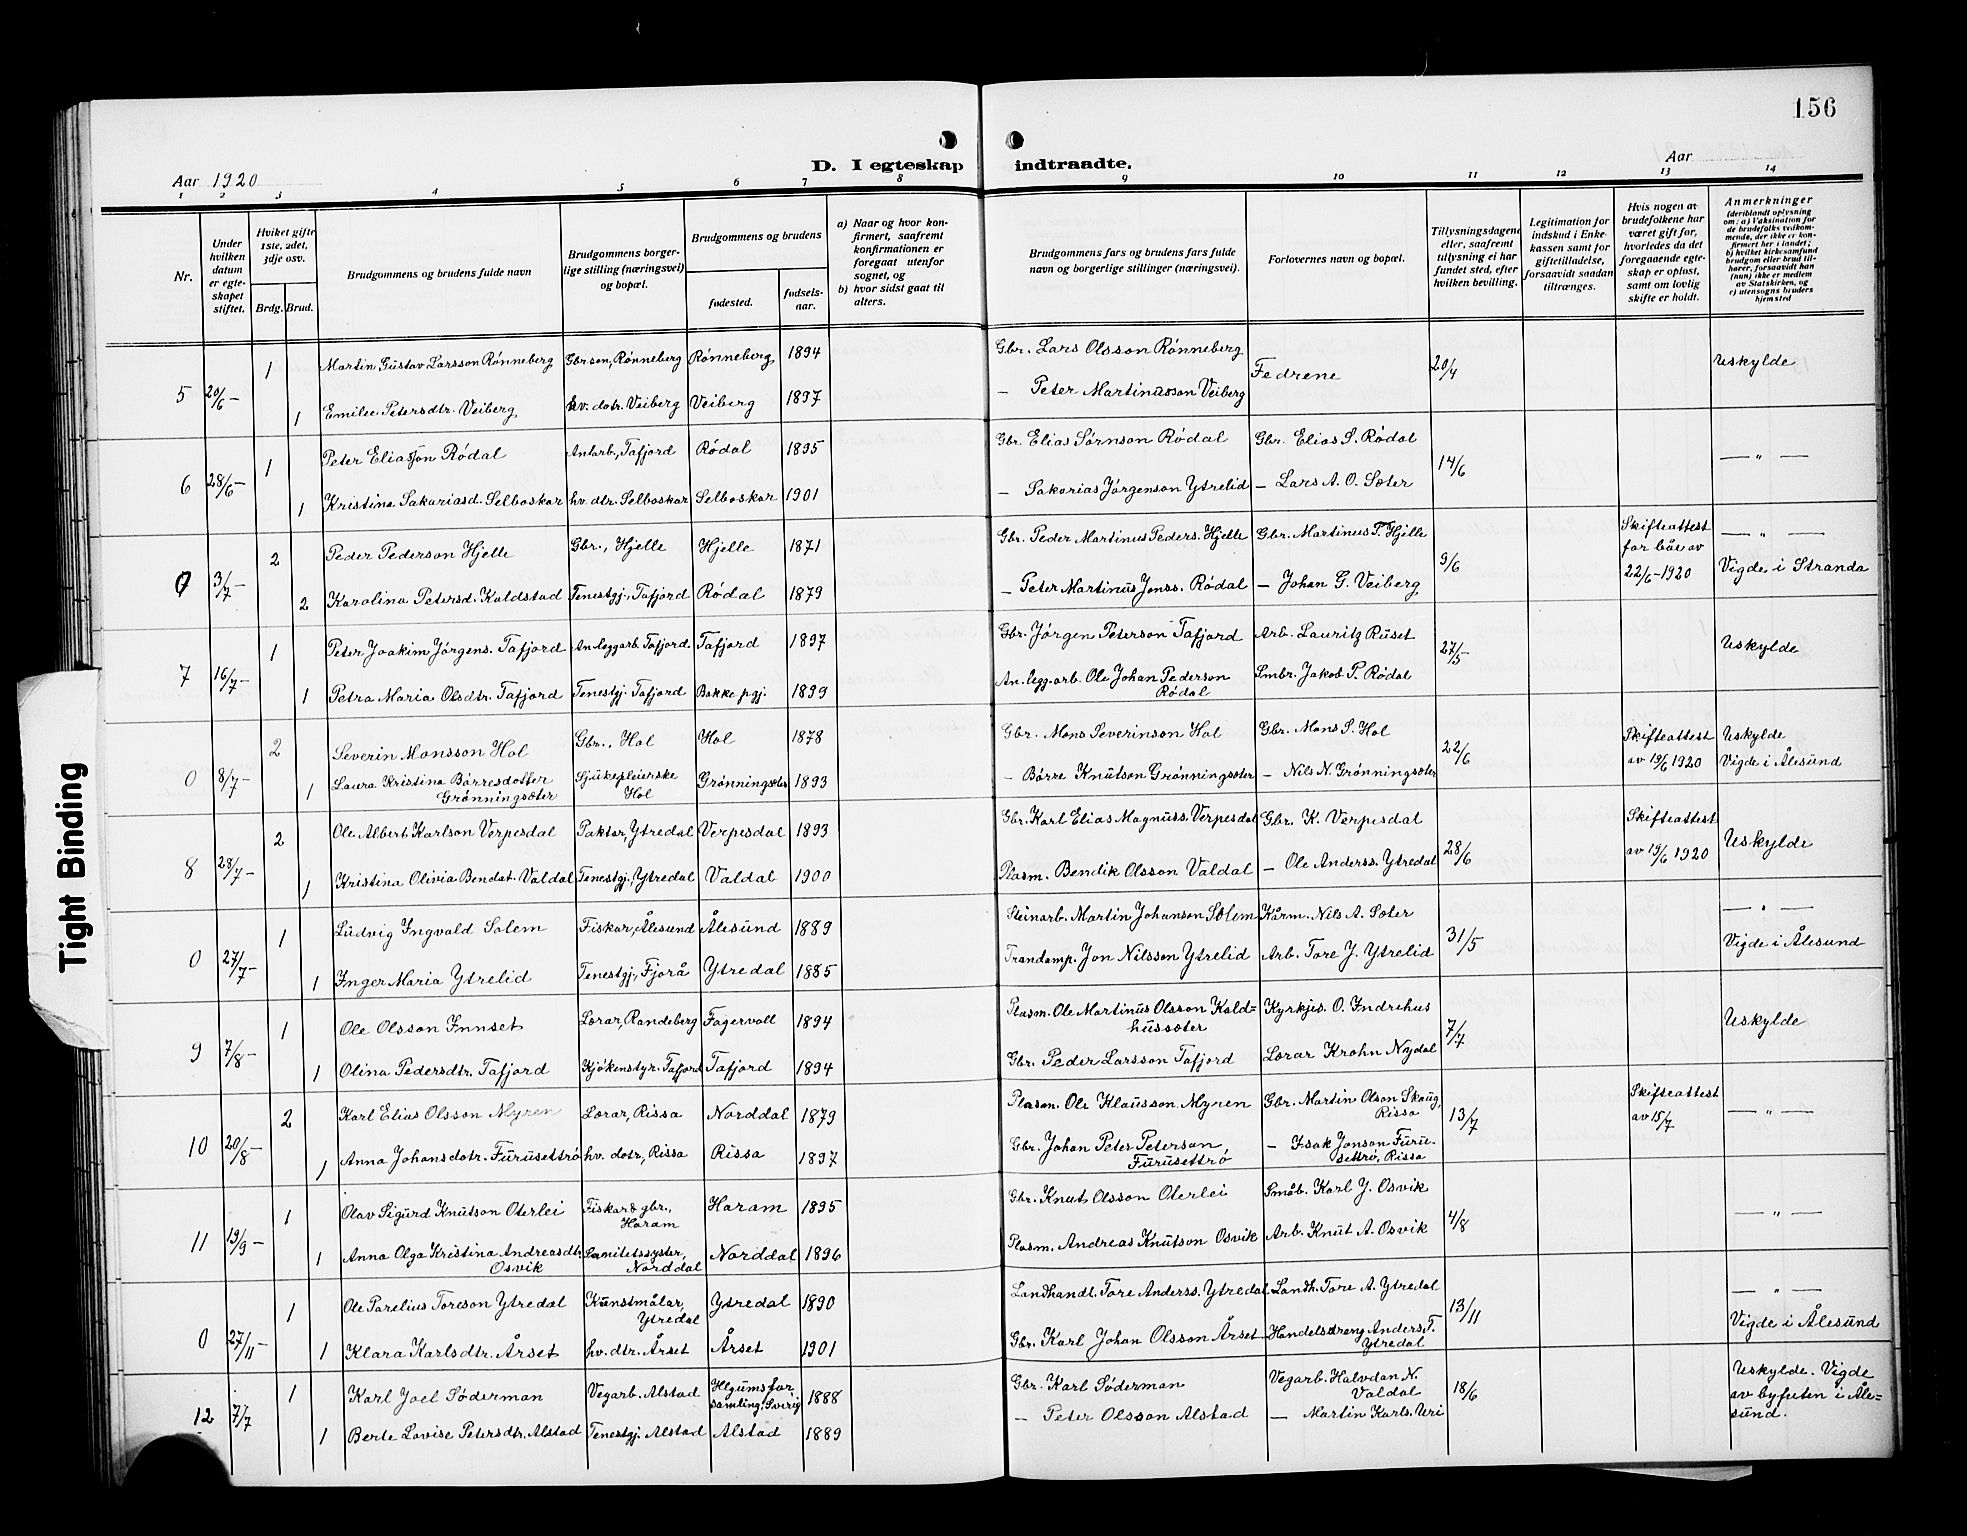 156
D. I egteskap indtraadte.
Aar 1920
Aar
1 2 3 4 5 6 7 8 9 10 11 12 13 14
Nr.
Under hvilken datum er egteskapet stiftet.
Hviket gifte 1ste, 2det, 3dje osv.
Brdg. Brud.
Brudgommens og brudens fulde navn
Brudgommens borgerlige stilling (næringsvei) og bopæl.
Brudgommens og brudens
fødested.
fødselsaar.
a) Naar og hvor konfirmert, saafremt konfirmationen er foregaat utenfor sognet, og
b) hvor sidst gaat til alters.
Brudgommens fars og brudens fars fulde navn og borgerlige stillinger (næringsvei).
Forlovernes navn og bopæl.
Tillysningsdagene eller, saafremt tillysning ei har fundet sted, efter hvilken bevilling.
Legitimation for indskud i Enkekassen samt for giftetilladelse, forsaavidt saadan tiltrænges.
Hvis nogen av brudefolkene har været gift før, hvorledes da det foregaaende egteskap er opløst, samt om lovlig skifte er holdt.
Anmerkninger (deriblandt oplysning om: a) Vaksination for de brudefolks vedkommende, der ikke er konfirmert her i landet; b) hvilket kirkesamfund brudgom eller brud tilhører, forsaavidt han (hun) ikke er medlem av Statskirken, og c) utensogns bruders hjemsted
5 20/6 – 1 Martin Gustav Larsson Rønneberg Gbrson, Rønneberg Rønneberg 1894 Gbr. Lars Olsson Rønneberg Fedrene 20/4 Uskylde
1 Emilie Petersdtr. Veiberg hv. dotr. Veiberg Veiberg 1897 – Peter Martinusson Veiberg
6 28/6 – 1 Peter Eliasson Rødal Anlarb., Tafjord Rødal 1895 Gbr. Elias Sørnson Rødal Gbr. Elias S. Rødal 14/6 — " —
1 Kristina Sakariasd. Selboskar hv. dtr. Selboskar Selboskar 1901 – Sakarias Jørgenson Ytrelid – Lars A. O. Sæter
0 3/7 – 2 Peder Pederson Hjelle Gbr., Hjelle Hjelle 1871 Gbr. Peder Martinus Peders. Hjelle Gbr. Martinus P. Hjelle 9/6 Skifteattest for båe av 22/6–1920 — " — Vigde i Stranda
2 Karolina Petersd. Kaldstad Tenestgj., Tafjord Rødal 1879 – Peter Martinus Jonss. Rødal – Johan G. Veiberg
7 16/7 – 1 Peter Joakim Jørgens. Tafjord Anleggarb. Tafjord Tafjord 1897 Gbr. Jørgen Peterson Tafjord Arb. Lauritz Ruset 27/5 Uskylde
1 Petra Maria Olsdtr. Tafjord Tenestgj. Tafjord Bakke pgj. 1899 An.legg.arb. Ole Johan Pederson Rødal Smbr. Jakob P. Rødal
0 8/7 – 2 Severin Monsson Hol Gbr., Hol Hol 1878 Gbr. Mons Severinson Hol Gbr. Mons S. Hol 22/6 Skifteattest av 19/6 1920 Uskylde Vigde i Ålesund
1 Laura Kristina Børresdotter Grønningsæter Sjukepleierske Hol Grønningsæter 1893 – Børre Knutson Grønningsæter – Nils N. Grønningsæter
8 28/7 – 2 Ole Albert Karlson Verpesdal Paktar, Ytredal Verpesdal 1893 Gbr. Karl Elias Magnuss. Verpesdal Gbr. K. Verpesdal 28/6 Skifteattest av 19/6 1920 Uskylde
1 Kristina Olivia Bendat. Valdal Tenestgj., Ytredal Valdal 1900 Plasm. Bendik Olsson Valdal – Ole Anderss. Ytredal
0 27/7 – 1 Ludvig Ingvald Solem Fiskar, Ålesund Ålesund 1889 Steinarb. Martin Johanson Solem Kårm. Nils A. Sæter 31/5 — " — Vigde i Ålesund
1 Inger Maria Ytrelid Tenestgj., Fjørå Ytredal 1885 Trandamp. Jon Nilsson Ytrelid Arb. Tore J. Ytrelid
9 7/8 – 1 Ole Olsson Innset Lærar, Randeberg Fagervoll 1894 Plasm. Ole Martinus Olsson Kaldhussæter Kyrkjes. O. Indrehus 7/7 Uskylde
1 Olina Pedersdtr. Tafjord Kjøkenstyr. Tafjord Tafjord 1894 Gbr. Peder Larsson Tafjord Lærar Krohn Nydal
10 20/8 – 2 Karl Elias Olsson Myren Lærar, Rissa Norddal 1879 Plasm. Ole Klausson Myren Gbr. Martin Olson Skaug, Rissa 13/7 Skifteattest av 15/7 — " —
1 Anna Johansdotr. Furusettrø hv. dotr, Rissa Rissa 1897 Gbr. Johan Peter Peterson Furusettrø – Isak Jonson Furusettrø, Rissa
11 19/9 – 1 Olav Sigurd Knutson Oterlei Fiskar & gbr., Haram Haram 1895 Gbr. Knut Olsson Oterlei Småb. Karl J. Osvik 4/8 — " —
1 Anna Olga Kristina Andreasdtr. Osvik Sanitetssyster, Norddal Norddal 1896 Plasm. Andreas Knutson Osvik Arb. Knut A. Osvik
0 27/11 – 1 Ole Parelius Toreson Ytredal Kunstmålar, Ytredal Ytredal 1890 Landhandl. Tore Anderss. Ytredal Landh. Tore A. Ytredal 13/11 — " — Vigde i Ålesund
1 Klara Karlsdtr. Årset hv. dtr. Årset Årset 1901 Gbr. Karl Johan Olsson Årset Handelsdreng Anders T. Ytredal
12 7/7 1 Karl Joel Søderman Vegarb. Alstad Helgumsforsamling, Sverig 1888 Gbr. Karl Søderman Vegarb. Halvdan N. Valdal 18/6 Uskylde. Vigde av byfuten i Ålesund.
1 Berte Lovise Petersdtr. Alstad Tenestgj. Alstad Alstad 1889 – Peter Olsson Alstad — Martin Karls. Uri
Tight Binding